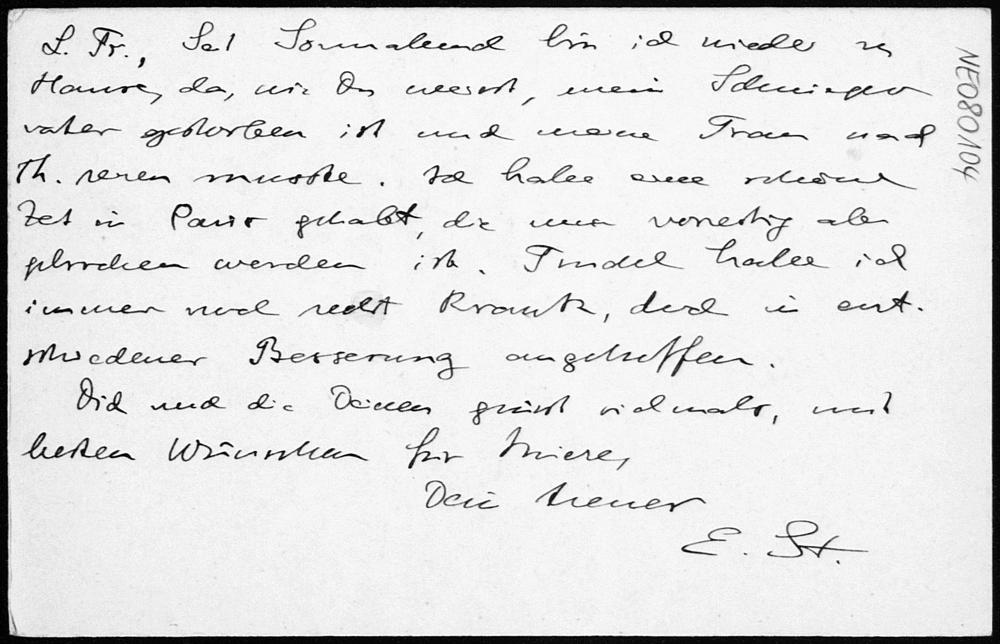 L. Fr., Seit Sonnabend bin ich wieder zu
Hause, da, wie Du weisst, mein Schwieger
vater gestorben ist und meine Frau nach
Th. reisen musste. Ich habe eine schöne
Zeit in Paris gehabt, die nur vorzeitig abge
brochen worden ist. Trudel habe ich
immer noch recht krank, doch in ent-
schiedener Besserung angetroffen.
Dich und die Deinen grüsst vielmals, mit
besten Wünschen für
Dein treuer
E. St.
NE080104